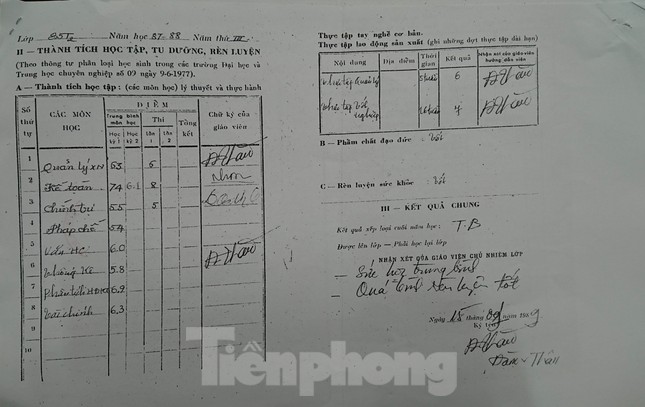 Lớp B5T2 Năm học 87-88 Năm thứ III
II — THÀNH TÍCH HỌC TẬP, TU DƯỠNG, RÈN LUYỆN
(Theo thông tư phân loại học sinh trong các trường Đại học và
Trung học chuyên nghiệp số 09 ngày 9-6-1977).
A — Thành tích học tập : (các môn học) lý thuyết và thực hành
Số thứ tự
CÁC MÔN HỌC
ĐIỂM
Trung bình môn học
Học kỳ 1
Học kỳ 2
Thi
lần 1
lần 2
Tổng kết
Chữ ký của giáo viên
1 Quản lý XN 6.3 6
2 Kế toán 7.4 6.1 8
3 Chính trị 5.5 5
4 Pháp chế 5.4
5 6.0
6 Thống kê 5.8
7 Phân tích HĐKT 6.9
8 Tài chính 6.3
9
10
Thực tập tay nghề cơ bản.
Thực tập lao động sản xuất (ghi những đợt thực tập dài hạn)
Nội dung Địa điểm Thời gian Kết quả Nhận xét của giáo viên hướng dẫn viên
Thực tập Quản lý 5 tuần 6
Thực tập tốt nghiệp 16 tuần 7
B — Phẩm chất đạo đức : Tốt
C — Rèn luyện sức khỏe : Tốt
III — KẾT QUẢ CHUNG
Kết quả xếp loại cuối năm học : T.B
Được lên lớp — Phải học lại lớp
NHẬN XÉT CỦA GIÁO VIÊN CHỦ NHIỆM LỚP
— Sức học trung bình
— Quá trình rèn luyện tốt
Ngày 15 tháng năm 19
Ký tên
Tiền phong